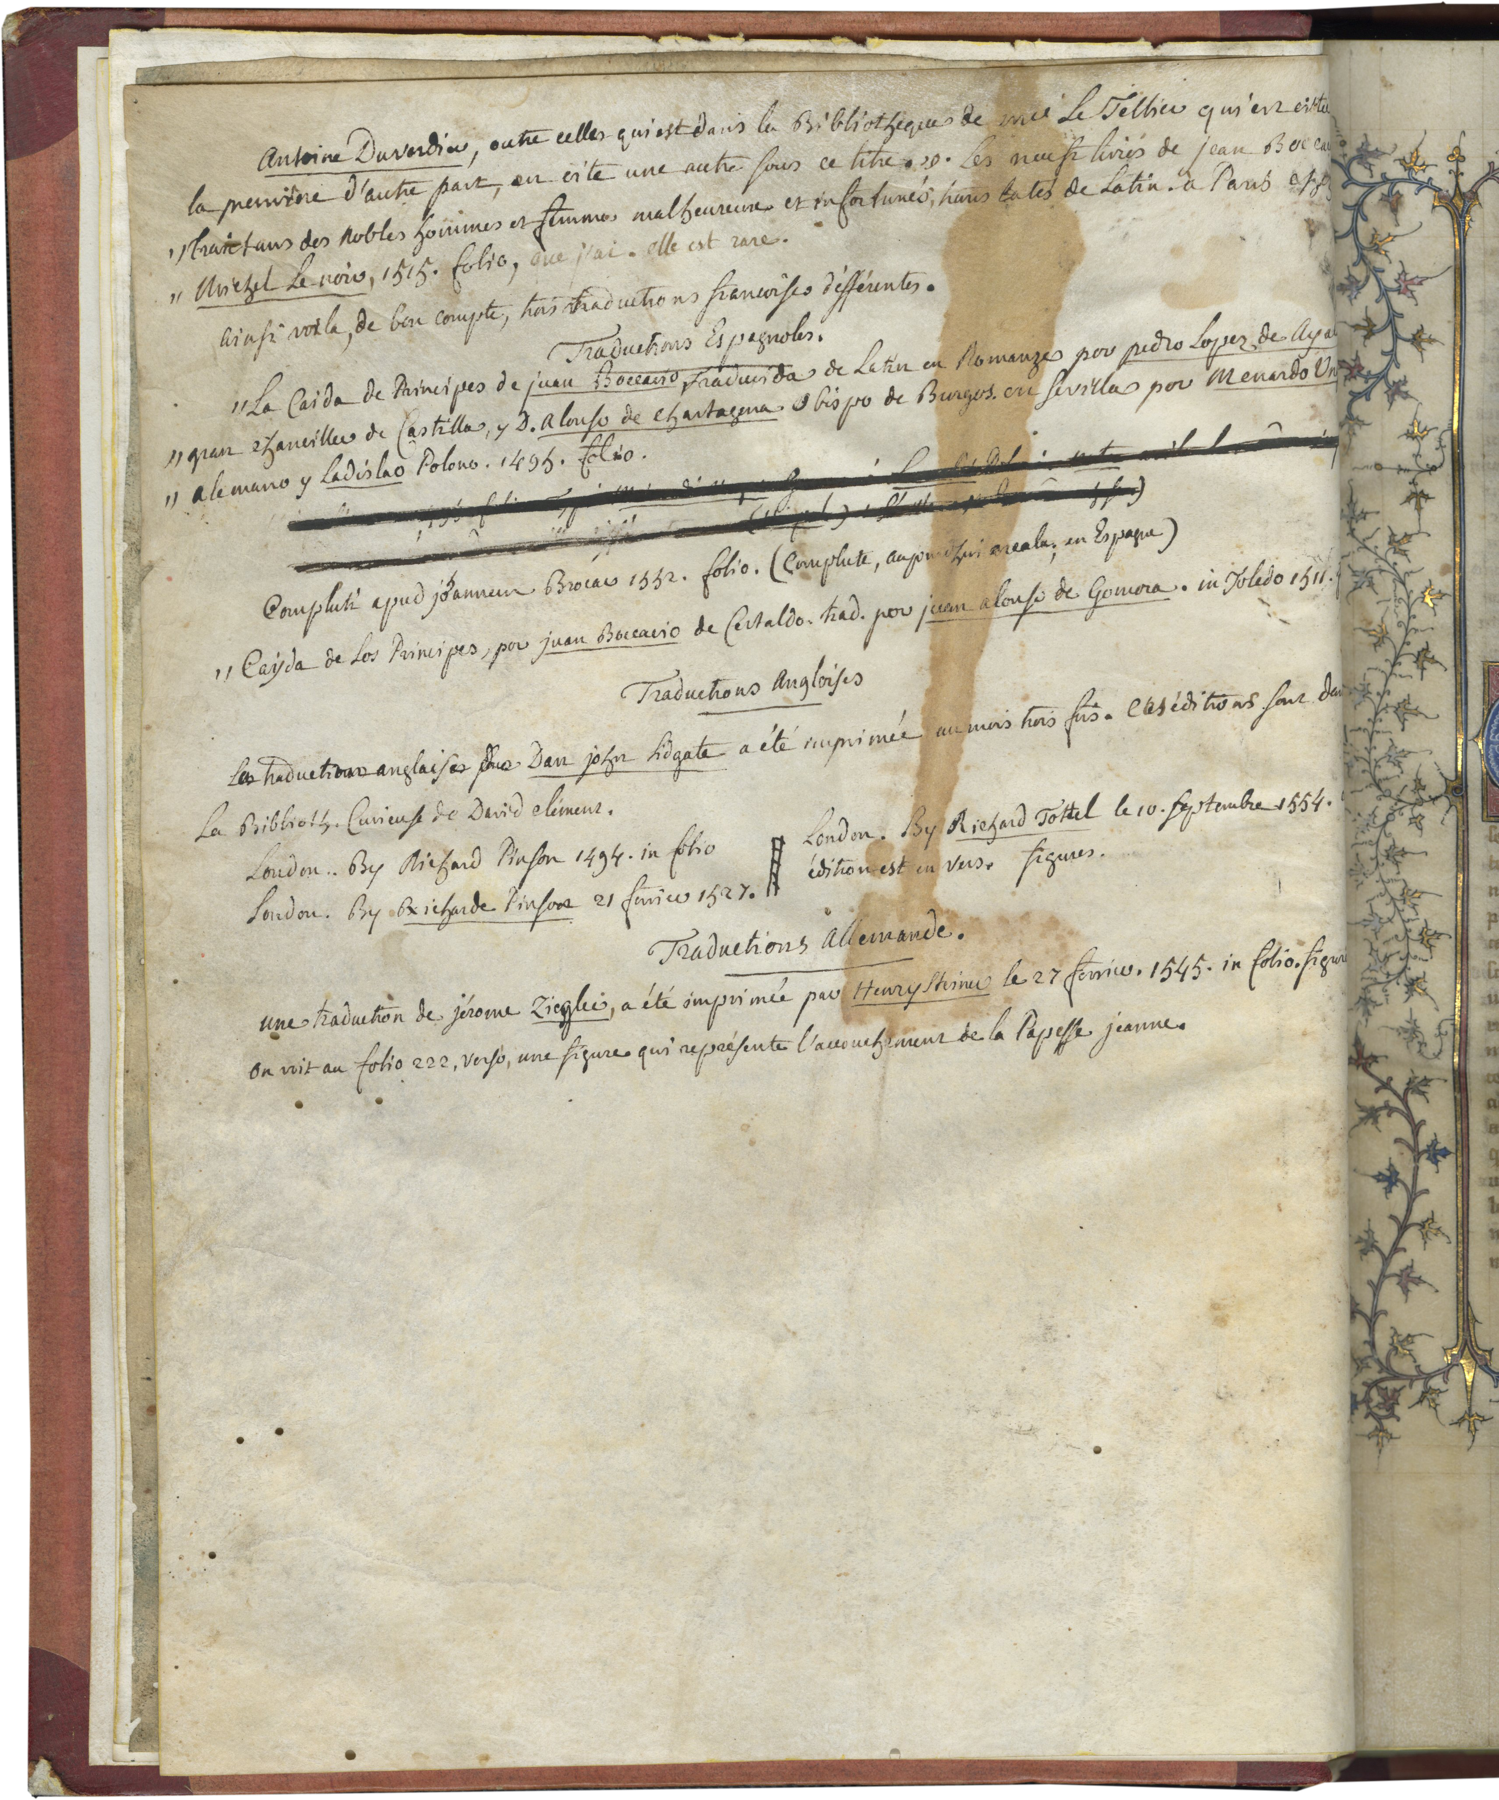 Antoine Duverdier, outre celles qui est dans la Bibliothéque de Le Tellier qu'est
la premiére d'autre part, en cite une autre sous ce titre. Les neuf livres de jean
,, traictans des Nobles hommes et femmes malheureux et infortunés, translatés de Latin. a Paris
,, Michel Le noir, 1515. folio, que j'ai. elle est rare.
ainsi voila, de bon compte, trois traductions françoises différentes.
Traductions Espagnoles.
,, La Caida de Principes de juan Boccacio, traducida de Latin en Romanze por pedro Lopez de
,, gran chanciller de Castilla, y D. Alonso de chartagena obispo de Burgos. en sevilla por Menardo
,, alemano y Ladislao Polono. 1495. folio.
Compluti apud joannem Brocar 1552. folio. (Complute, aujourdhui alcala, en Espagne)
,, Cayda de Los Principes, por juan Boccacio de Certaldo. trad. por juan alonso de Gomora. in Toledo 1511.
Traductions Angloises
La traduction anglaise Dan john Lidgate a été imprimée au mois trois fois. Ces éditions sont
La Biblioth. Curieuse de David clément.
London.. By Richard Pinson 1494. in folio
London. By Richarde Pinson 21 fevrier 1527.
London. By Richard Tottel le 10. septembre 1554.
édition est en vers. figures.
Traductions Allemande.
une traduction de jérome Zieglei, a été imprimée par Henry Steiner le 27 fevrier. 1545. in folio.
on voit au folio 222, verso, une figure qui représente l'accouchement de la Papesse jeanne.